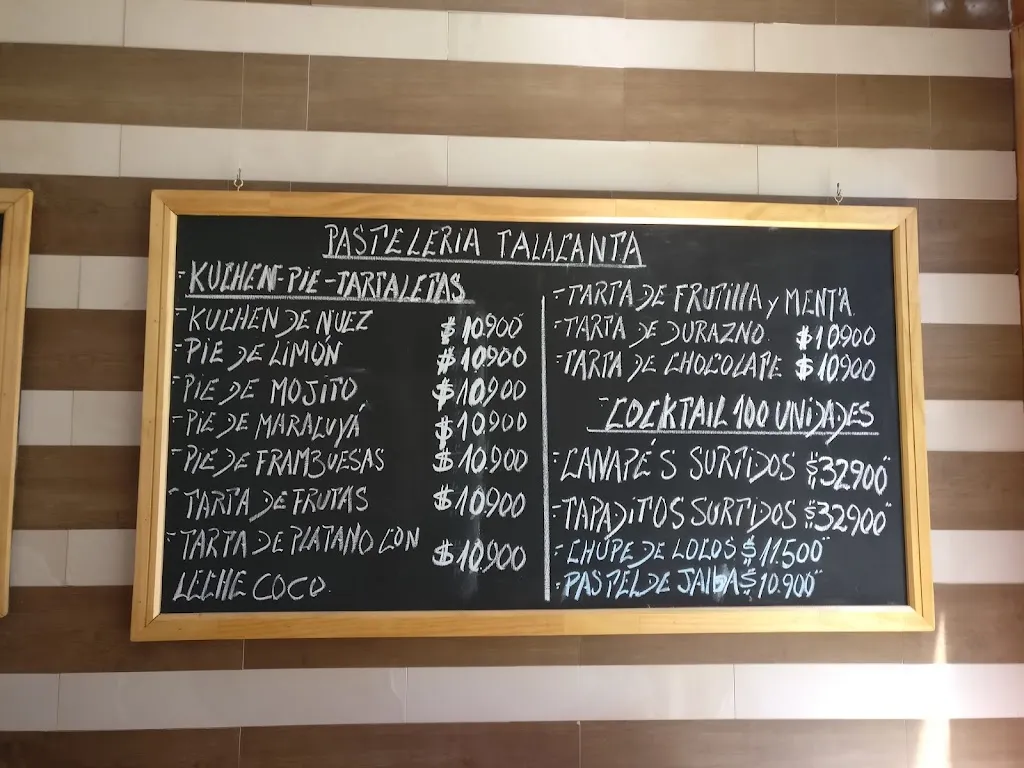 PASTELERIA TALACANTA
- KUCHEN-PIE-TARTALETAS
- KUCHEN DE NUEZ $10.900
- PIE DE LIMÓN $10.900
- PIE DE MOJITO $10.900
- PIE DE MARACUYÁ $10.900
- PIE DE FRAMBUESAS $10.900
- TARTA DE FRUTAS $10.900
- TARTA DE PLATANO CON $10.900
LECHE COCO.
- TARTA DE FRUTILLA y MENTA.
- TARTA DE DURAZNO. $10900
- TARTA DE CHOCOLATE $10900
- COCKTAIL 100 UNIDADES
- CANAPÉS SURTIDOS $32900
- TAPADITOS SURTIDOS $32900
- CHUPE DE LOCOS $11.500
- PASTEL DE JAIBA $10.900